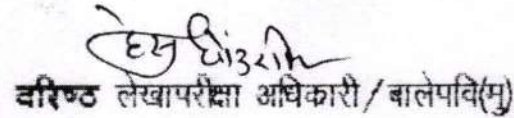 वरिष्ठ लेखापरीक्षा अधिकारी/बालेपवि(मु)